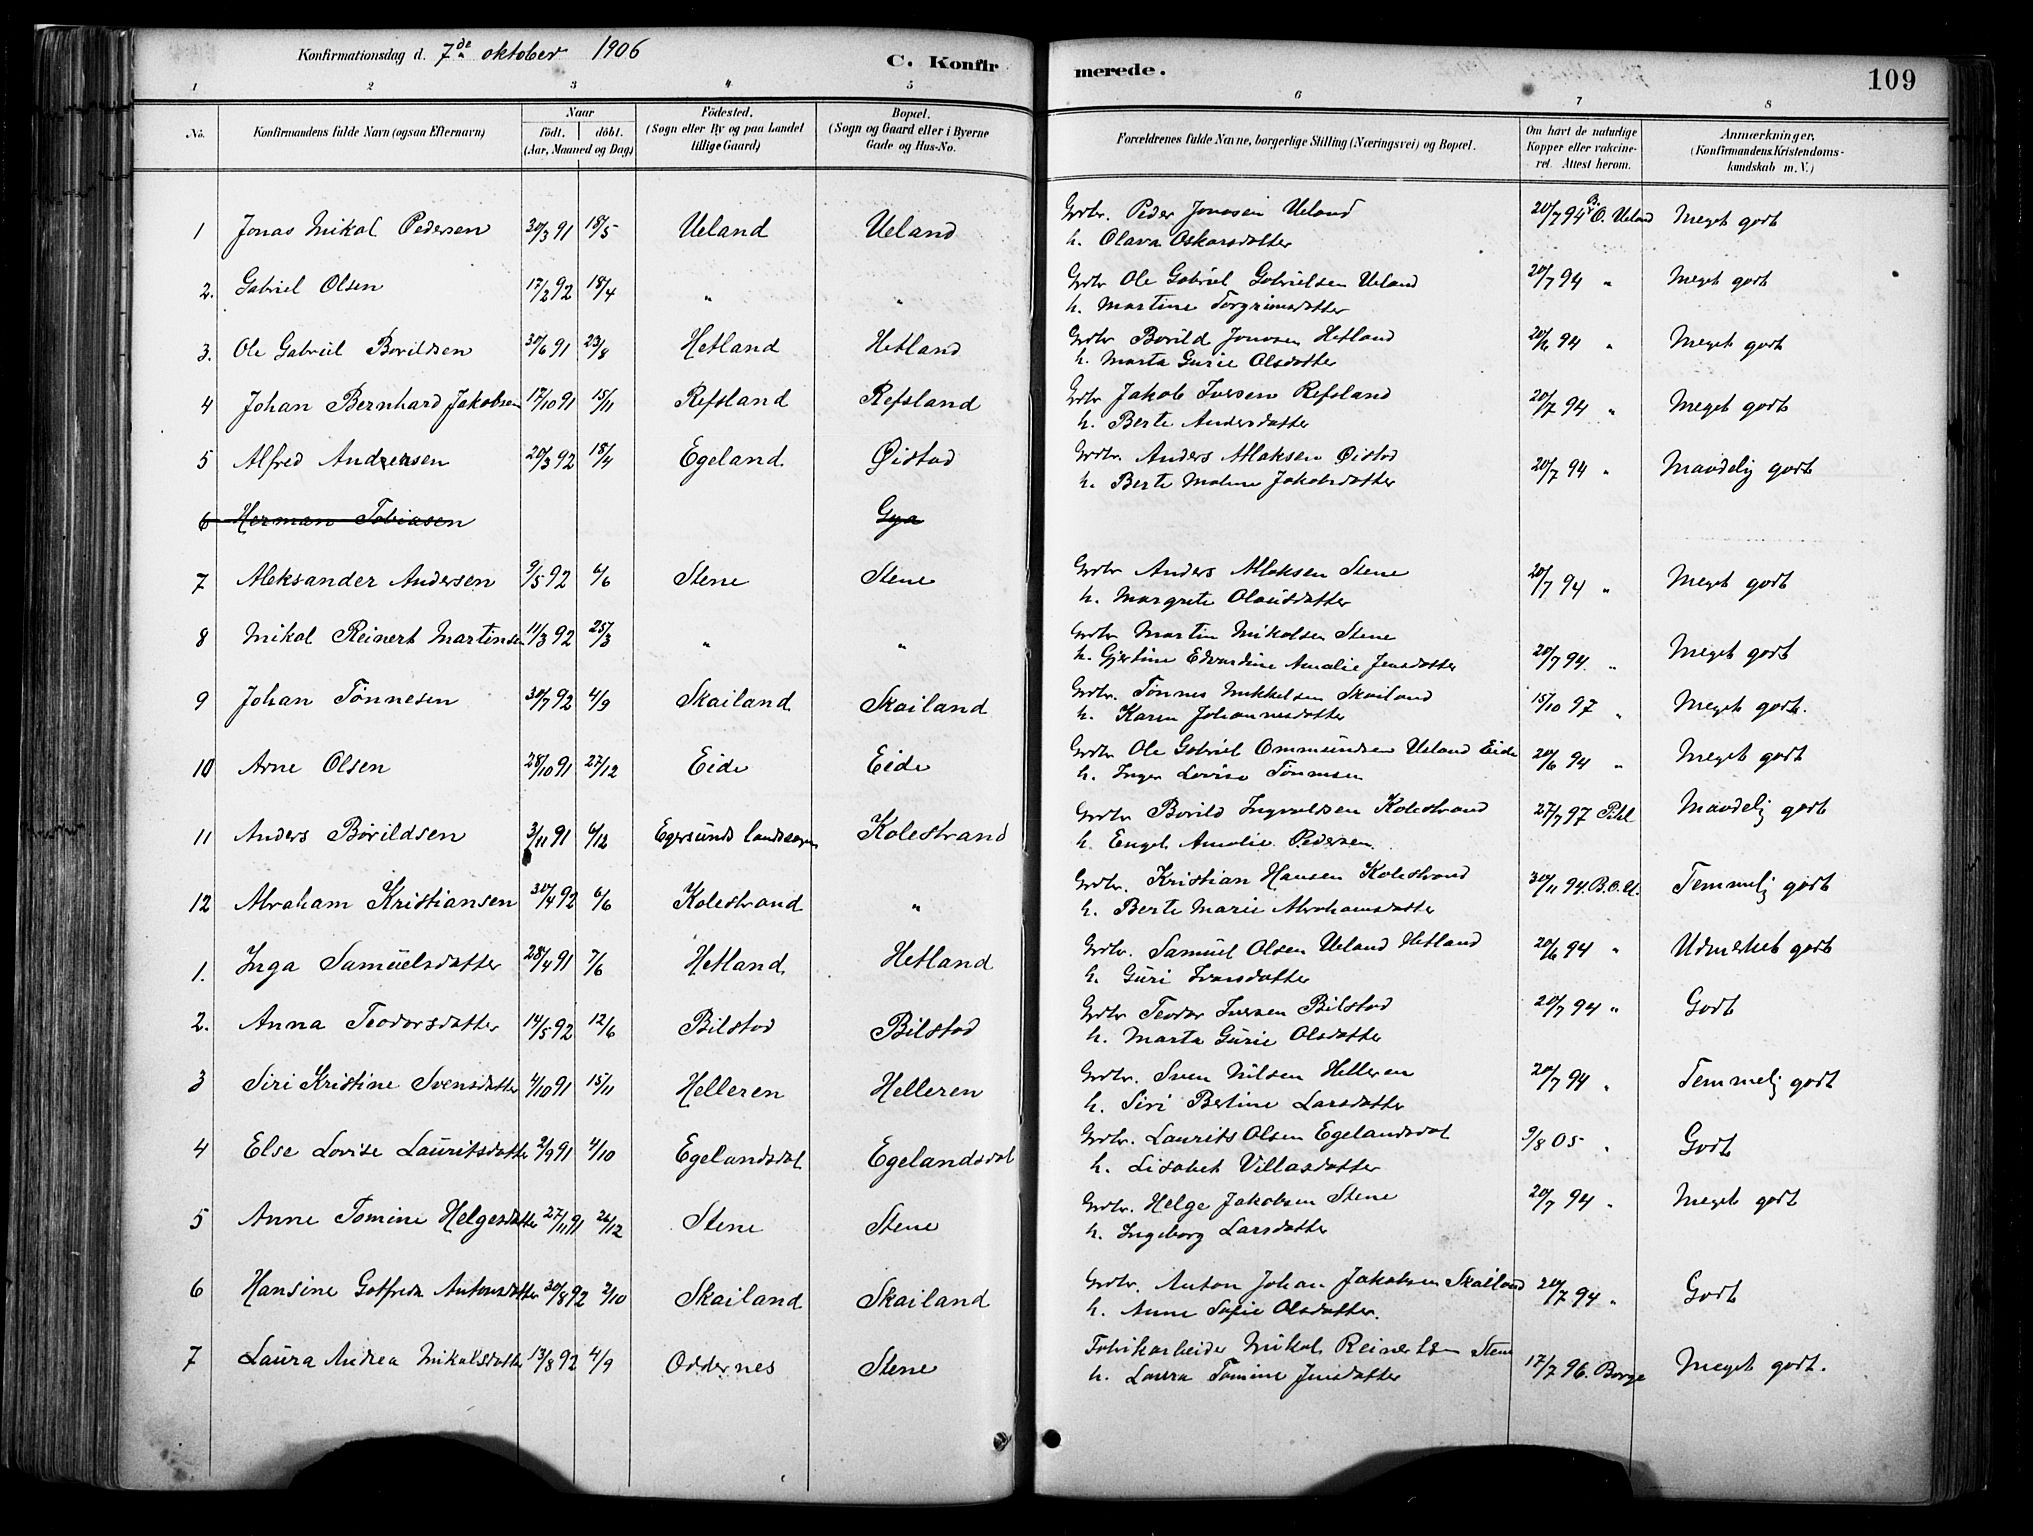 Konfirmationsdag d. 7de oktober 1906
C. Konfirmerede.
109
1 2 3 4 5 6 7 8
No.
Konfirmandens fulde Navn (ogsaa Efternavn)
Naar
födt. döbt.
(Aar, Maaned og Dag)
Födested.
(Sogn eller By og paa Landet
tillige Gaard)
Bopæl.
(Sogn og Gaard eller i Byerne
Gade og Hus-No.
Forældrenes fulde Navne, borgerlige Stilling (Næringsvei) og Bopæl.
Om havt de naturlige
Kopper eller vakcine-
ret. Attest herom.
Anmærkninger.
(Konfirmandens Kristendoms-
kundskab m.V.)
1 Jonas Mikal Pedersen 30/3 91 18/5 Ueland Ueland Grdbr. Peder Jonasen Ueland 20/7 94 B.O. Ueland Meget godt
h. Olava Oskarsdatter
2. Gabriel Olsen 17/2 92 18/4 " " Grdbr Ole Gabriel Gabrielsen Ueland 20/7 94 " Meget godt
h. Martine Torgrimsdatter
3. Ole Gabriel Borildsen 30/6 91 23/8 Hetland Hetland Grdbr Borild Jonasen Hetland 20/6 94 " Meget godt
h. Marta Gurie Olsdatter
4 Johan Bernhard Jakobsen 17/10 91 15/11 Refsland Refsland Grdbr Jakob Iversen Refsland 20/7 94 " Meget godt
h. Berte Andersdatter
5 Alfred Andersen 20/3 92 18/4 Egeland Øistad Grdbr. Anders Aslaksen Øistad 20/7 94 " Maadelig godt
h. Berte Malene Jakobsdatter
6 Herman Tobiasen Gya
7 Aleksander Andersen 9/5 92 6/6 Stene Stene Grdbr Anders Aslaksen Stene 20/7 94 " Meget godt
h. Margrete Olausdatter
8 Mikal Reinert Martinsen 11/3 92 25/3 " " Grdbr Martin Mikalsen Stene 20/7 94. " Meget godt
h. Gjertine Edvardine Amalie Jensdatter
9 Johan Tønnesen 30/7 92 4/9 Skailand Skailand Grdbr. Tønnes Mikkelsen Skailand 15/10 97 " Meget godt.
h. Karen Johannesdatter
10 Arne Olsen 28/10 91 27/12 Eide Eide Grdbr Ole Gabriel Ommundsen Ueland Eide 20/6 94 " Meget godt
h. Inger Lovise Tønnesen
11 Anders Børildsen 3/11 91 6/12 Egersunds landsogn Kolestrand Grdbr Borild Ingvaldsen Kolestrand 27/7 97 Pihl Maadelig godt
h. Engel Amalie Pedersen
12 Abraham Kristiansen 30/4 92 6/6 Kolestrand " Grdbr. Kristian Hansen Kolestrand 30/11 94. B.O.U. Temmelig godt
h. Berte Marie Abrahamsdatter
1. Inga Samuelsdatter 28/4 91 7/6 Hetland Hetland Grdbr. Samuel Olsen Ueland Hetland 20/6 94 " Udmerket godt
h. Guri Ivarsdatter
2. Anna Teodorsdatter 14/5 92 12/6 Bilstad Bilstad Grdbr Teodor Iversen Bilstad 20/7 94 " Godt
h. Marta Gurie Olsdatter
3 Siri Kristine Svensdatter 4/10 91 15/11 Helleren Helleren Grdbr. Sven Nilsen Helleren 20/7 94 " Temmelig godt
h. Siri Bertine Larsdatter
4 Else Lovise Lauritsdatter 2/9 91 4/10 Egelandsdal Egelandsdal Grdbr. Laurits Olsen Egelandsdal 9/8 05 " Godt
h. Lisabet Villasdatter
5 Anne Tomine Helgesdatter 27/11 91 26/12 Stene Stene Grdbr. Helge Jakobsen Stene 20/7 94 " Meget godt
h. Ingeborg Larsdatter
6 Hansine Gotfreda Antonsdatter 30/8 92 2/10 Skailand Skailand Grdbr. Anton Johan Jakobsen Skailand 20/7 94 " Godt
h. Anne Sofie Olsdatter.
7 Laura Andrea Mikalsdatter 13/8 92 4/9 Oddernes Stene Fabrikarbeider Mikal Reinertsen Stene 17/7 96. Borge Meget godt.
h. Laura Tomine Jensdatter